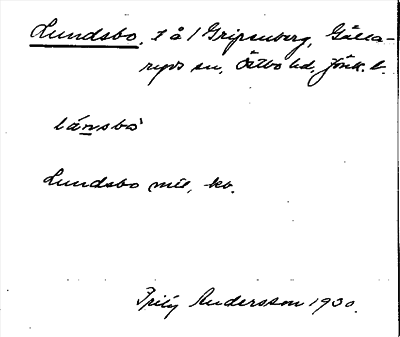 Lundsbo, t å / Gripenberg, Gälla-
ryds sn, Östbo hd, Jönk. l.
lánsbò
Lundsbo mtl, kb.
Fritz Andersson 1930.